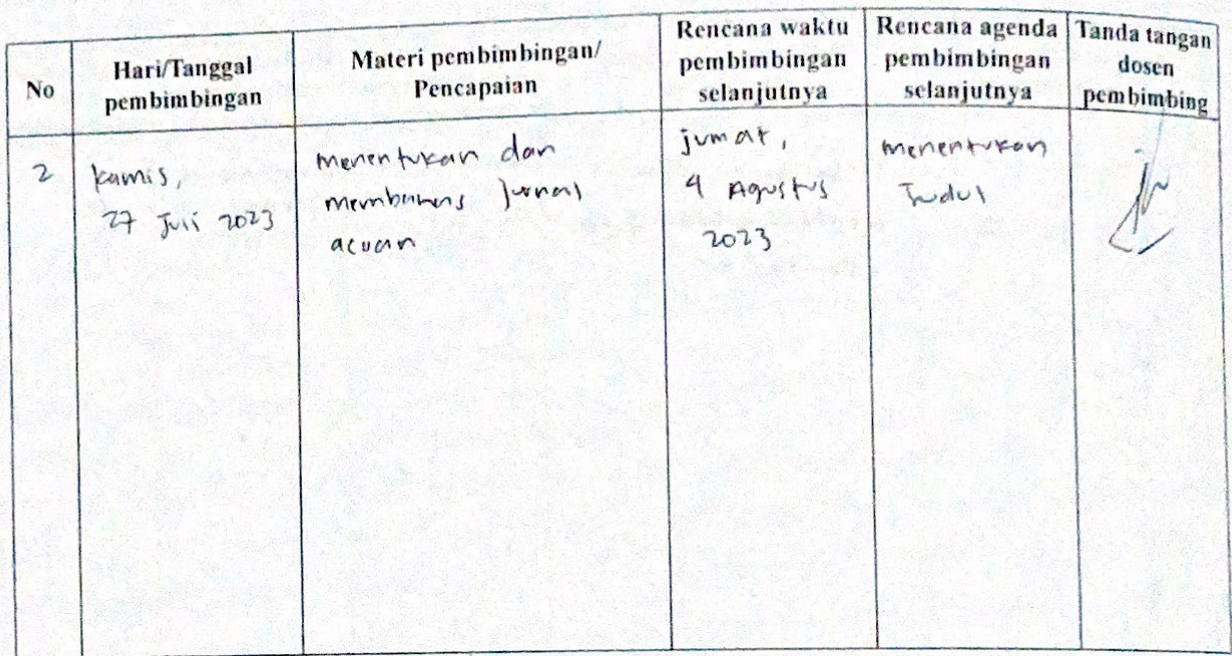 No
Hari/Tanggal
pembimbingan
Materi pembimbingan/
Pencapaian
Rencana waktu
pembimbingan
selanjutnya
Rencana agenda
pembimbingan
selanjutnya
Tanda tangan
dosen
pembimbing
2
kamis,
27 Juli 2023
menentukan dan
membahas jurnal
acuan
jumat,
4 Agustus
2023
menentukan
Judul